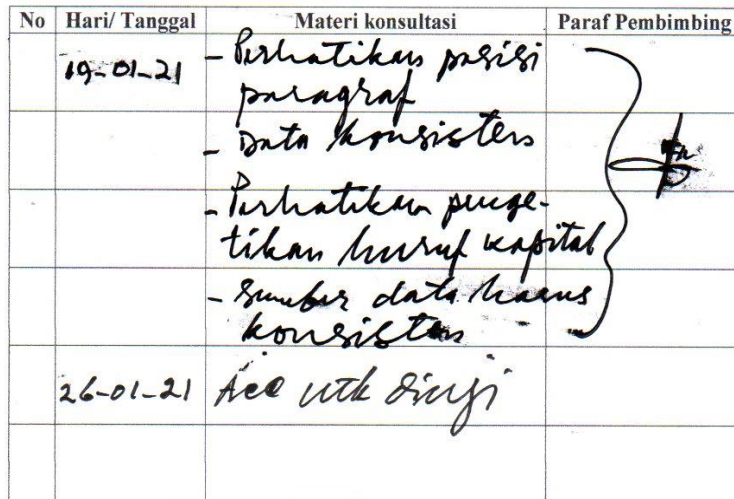 No Hari/ Tanggal Materi konsultasi Paraf Pembimbing
19-01-21 - Perhatikan posisi
paragraf
- Data konsisten
- Perhatikan penge-
tikan huruf kapital
- Sumber data harus
konsisten
26-01-21 Acc utk diuji